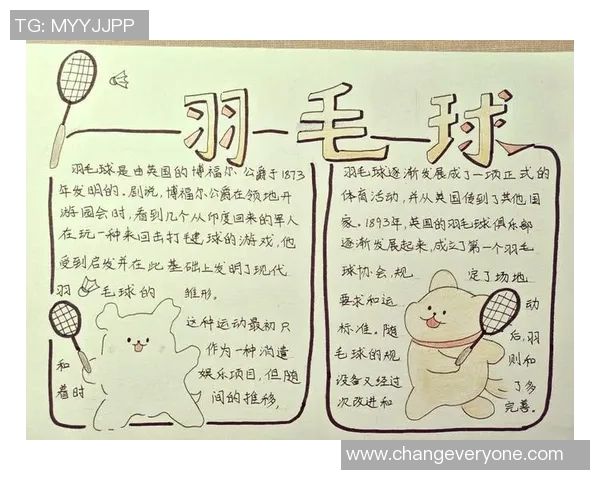 TG: MYYJJPP
羽毛球
羽毛球是由英国的博福尔公爵于1873
年发明的。剧说，博福尔公爵在领地开
游园会时，看到几个从印度回来的军人
在玩一种来回击打毽球的游戏，他
受到启发并在此基础上发明了现代
羽毛球的雏形。
这种运动最初只
和作为一种消遣
娱乐项目，但随
着时间的推移，
羽毛球逐渐发展成了一项正式的
体育活动，并从英国传到了其他国
家。1893年，英国的羽毛球俱乐部
逐渐发展起来，成立了第一个羽毛
球协会，规定了场地
要求和运动
标准。随后，羽
毛球的规则和
设备又经过了多
次改进和完善。
www.changeveryone.com